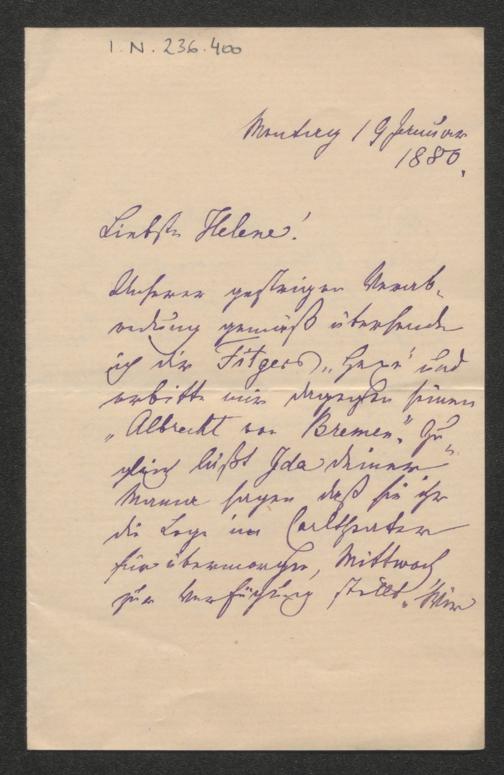 I.N. 236.400
Montag 19 Januar
1880.
Liebste Helene!
Unserer gestrigen Verab-
redung gemäß übersende
ich dir Fitgers „Hexe" und
erbitte mir dagegen seinen
„Albrecht von Bremen". Zu-
gleich läßt Ida deiner
Mama sagen daß sie ihr
die Loge im Carltheater
für übermorgen, Mittwoch
zur Verfügung stellt. Wir